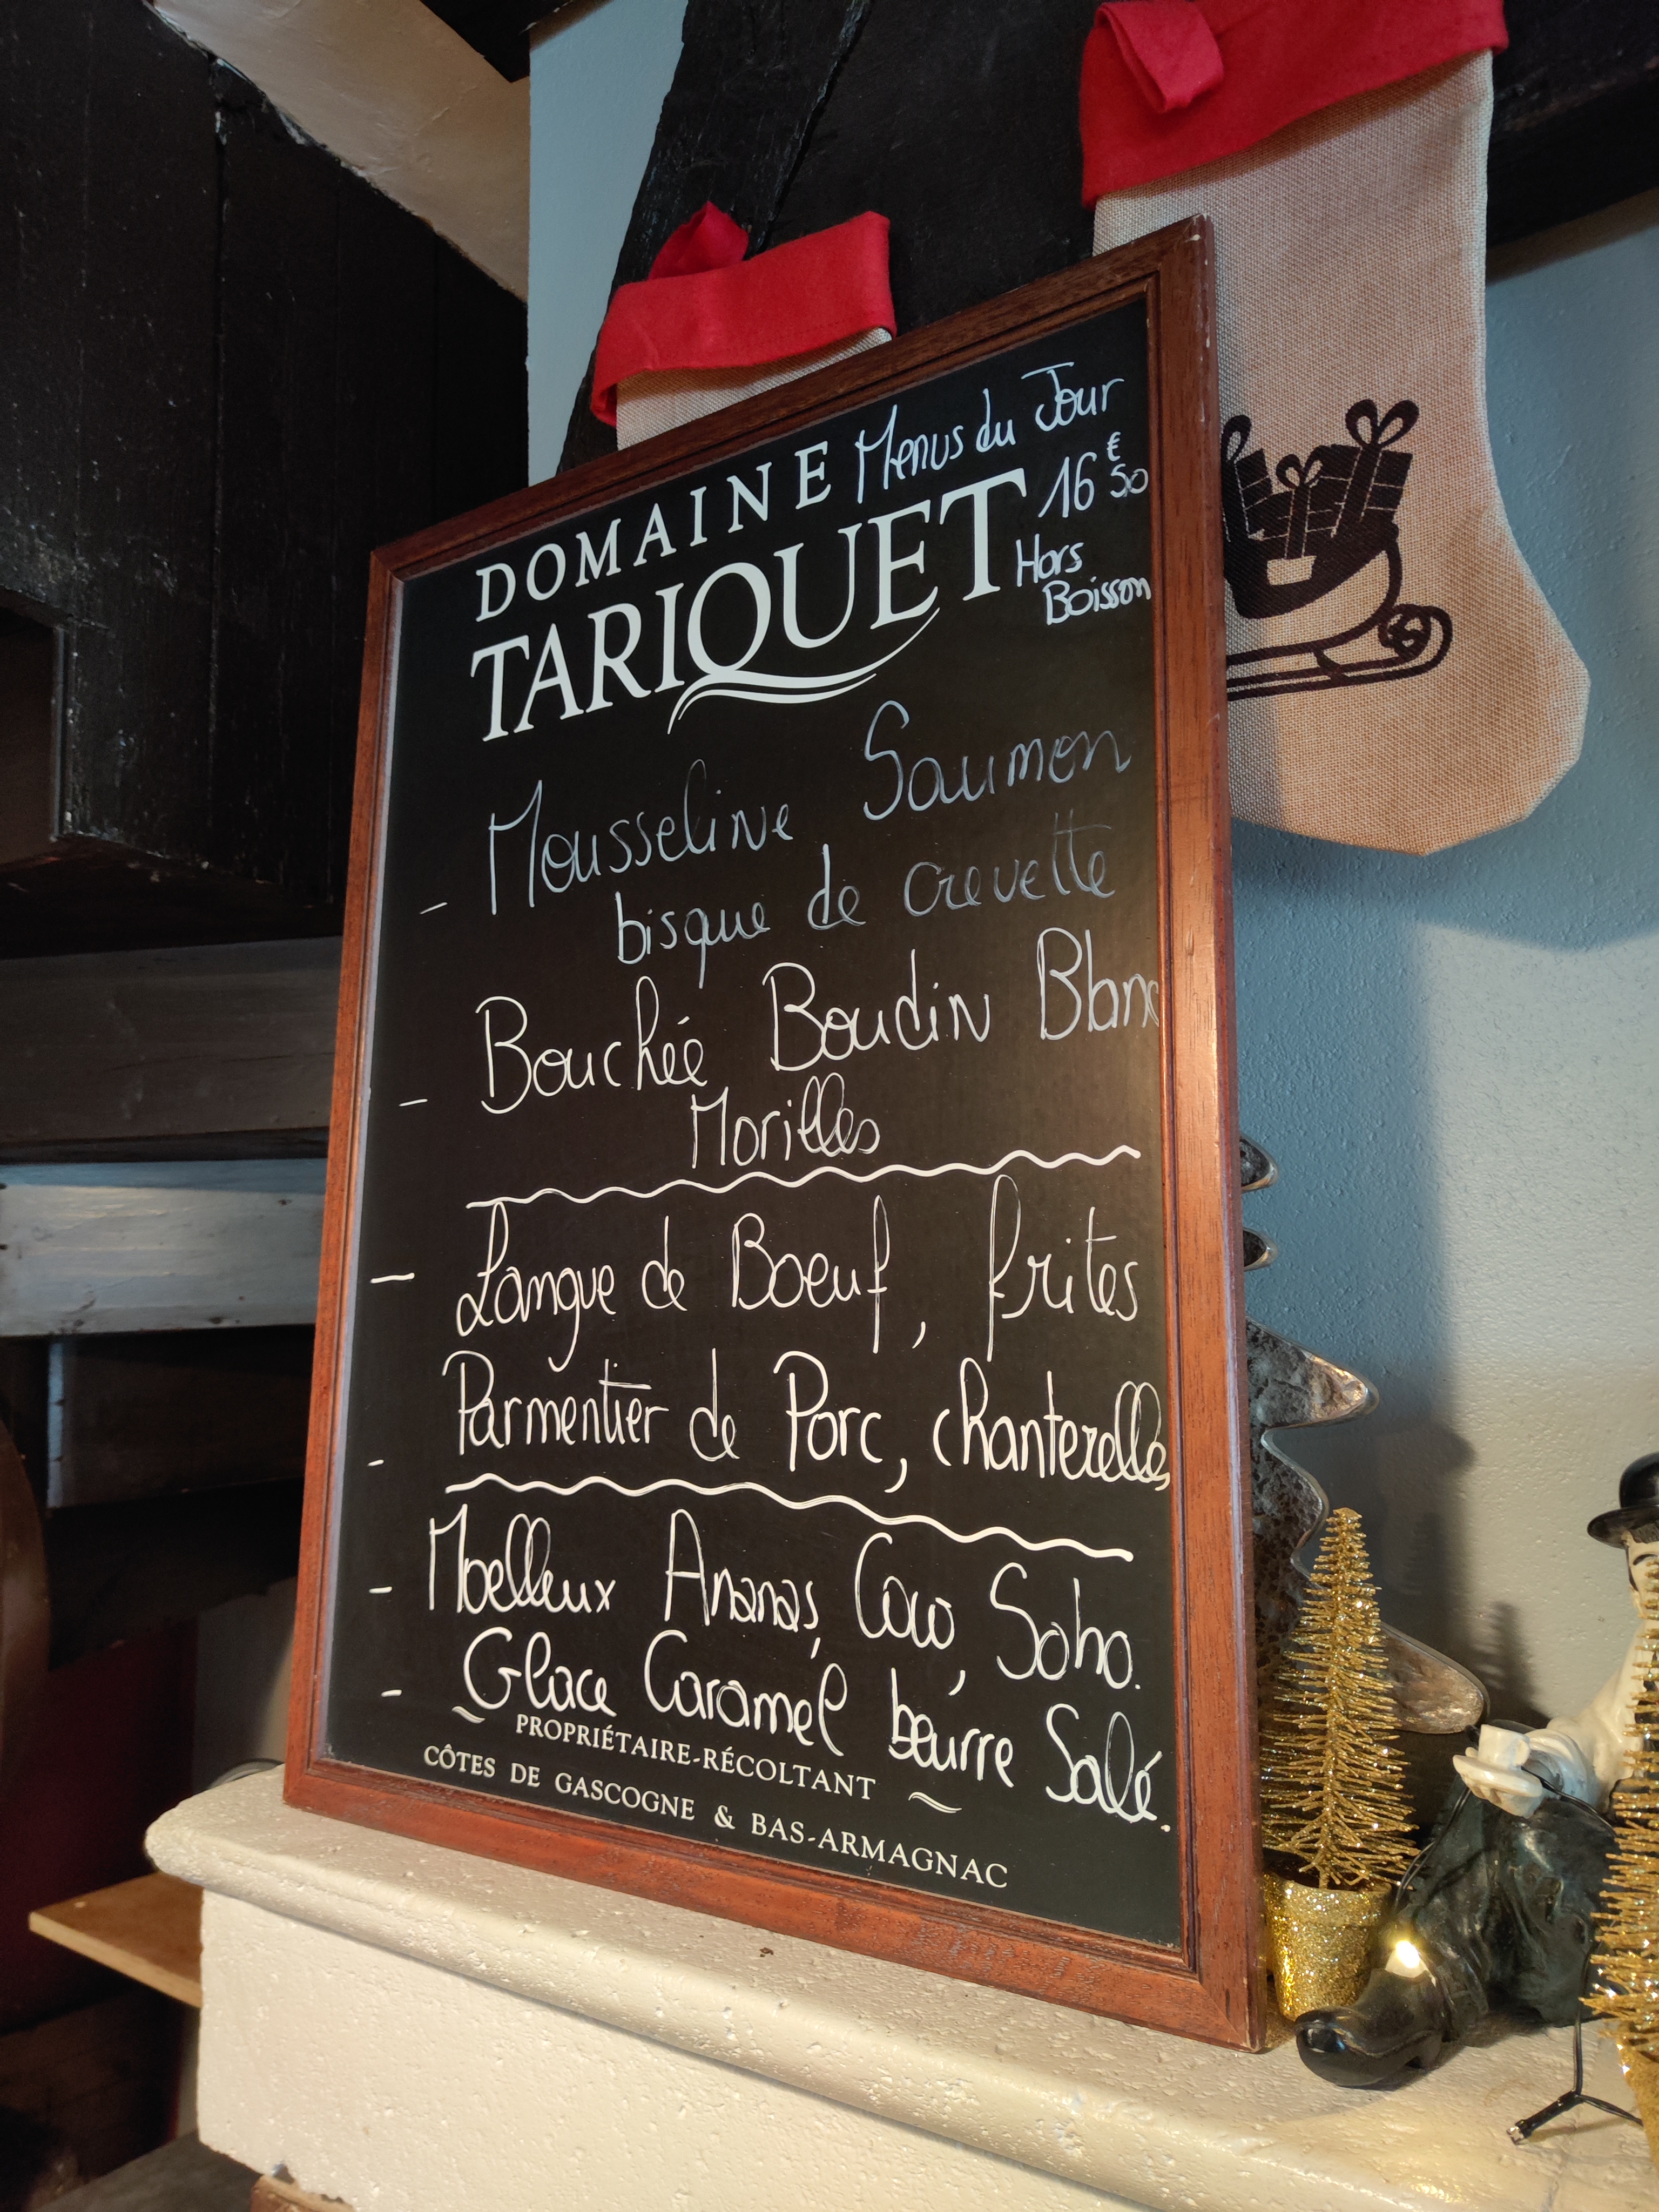 DOMAINE Menus du Jour
TARIQUET 16€50
Hors
Boisson
- Mousseline Saumon
bisque de crevette
- Bouchée Boudin Blanc
Morilles
- Langue de Boeuf, frites
- Parmentier de Porc, chanterelles
- Moelleux Ananas, Coco, Soho.
- Glace Caramel beurre Salé.
~ PROPRIÉTAIRE-RÉCOLTANT ~
CÔTES DE GASCOGNE & BAS-ARMAGNAC